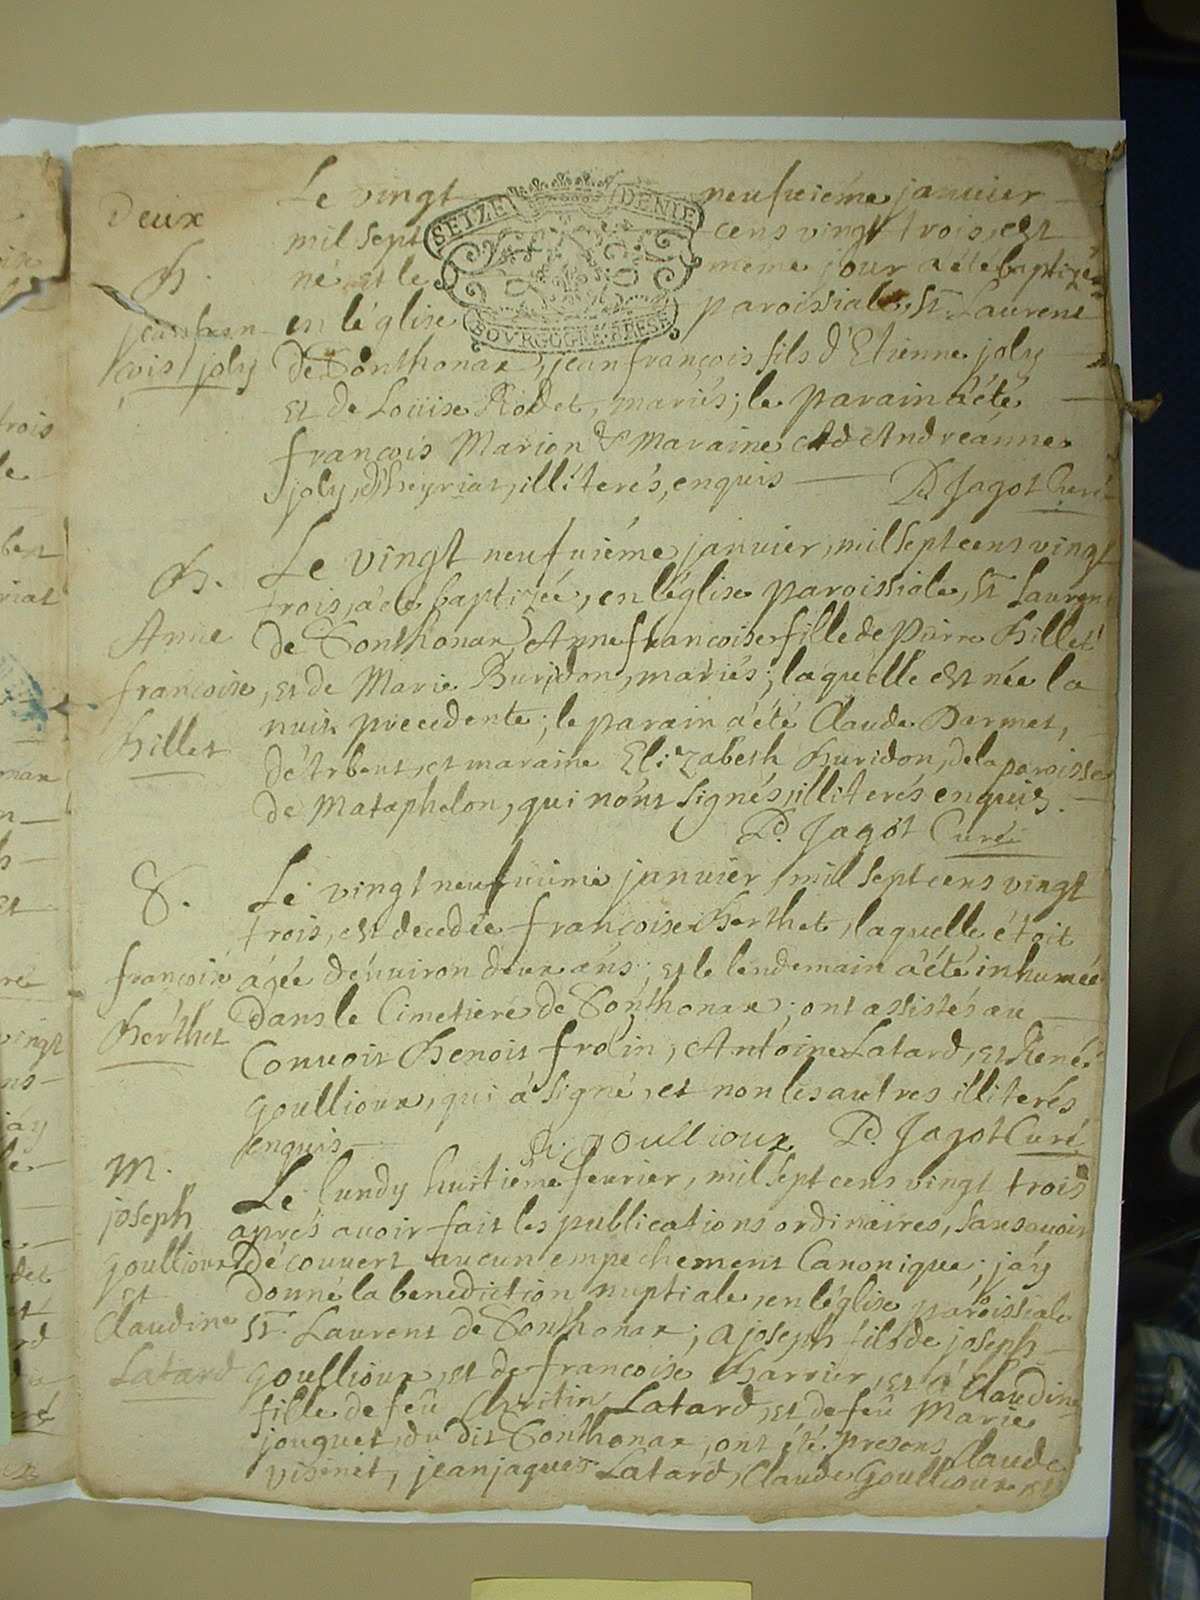 Deux
Le vingt neufuiéme januier
mil sept cens vingt trois, est
SEIZE DENIE
BOURGOGNE BRESE
B.
né et le méme jour a été baptizé
jean fran
cois joly
en léglise paroissiale, St. Laurent
de Sonthonax, jean françois fils d'Etienne joly
et de Loüise Rodet, mariés; le parain a été
françois Marion & Maraine Andreanne
joly, d'heyriat, illiterés, enquis — Pd. Jagot Curé
B.
Anne
francoise
billet
Le vingt neufuiéme januier, mil sept cens vingt
trois, a été baptizée, en léglise paroissiale, St Lauren
de Sonthonax, Anne francoise fille de Pierre billet
, et de Marie Buridon, mariés; laquelle est née la
nuit precedente; le parain a été Claude Darmet,
d'Arbent, et maraine Elizabeth buridon, de la paroisse
de Mataphelon, qui n'ont signés, illiterés enquis. —
Pd. Jagot Curé
S.
françoise
berthet
Le vingt neufuiéme januier, mil sept cens vingt
trois, est decedée françoise berthet, laquelle étoit
ágée d'enuiron deux ans; et le lendemain a été inhumée
dans le Cimetiere de Sonthonax; ont assistés au —
Conuoit benoit frolin, Antoine Latard, et René
Goullioux, qui a signé, et non les autres illiterés
enquis — R. goullioux Pd. Jagot Curé
M.
joseph
Goullioux
et
Claudine
Latard
Le lundy huitiéme feurier, mil sept cens vingt trois
apres auoir fait les publications ordinaires, sans auoir
découuert aucun empechement Canonique; j'ay
donné la benediction nuptiale, en léglise paroissiale
St. Laurent de Sonthonax; a joseph fils de joseph —
Goullioux, et de francoise barrier, et á Claudine
fille de feû Christin Latard, et de feû Marie
jouguet, du dit Sonthonax, ont été presens Claude
visinet, jean jaques Latard, Claude Goullioux, et